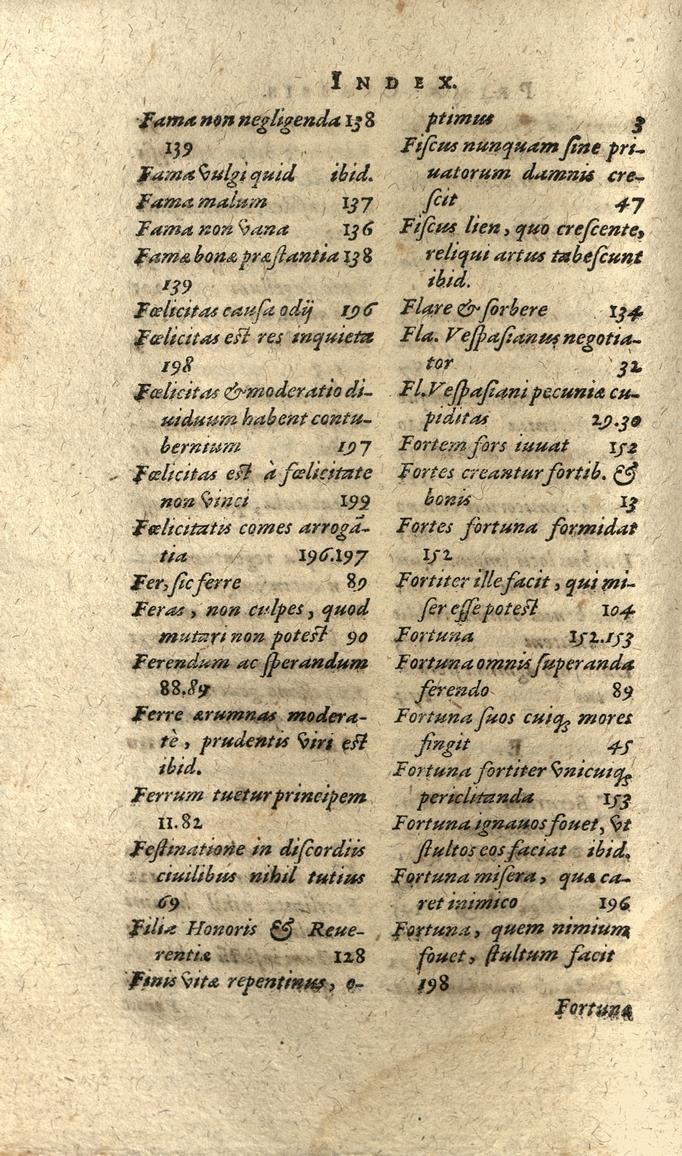 INDEX.
Fama non negligenda 138
139
Fama vulgi quid ibid.
Fama malum 137
Fama non vana 136
Famæ bonæ præstantia 138
139
Fœlicitas causa odij 196
Fœlicitas est res inquieta
198
Fœlicitas & moderatio di-
uiduum habent contu-
bernium 197
Fœlicitas est à fœlicitate
non vinci 199
Fœlicitatis comes arrogā-
tia 196.197
Fer, sic ferre 89
Feras, non culpes, quod
mutari non potest 90
Ferendum ac sperandum
88.89
Ferre ærumnas modera-
tè, prudentis viri est
ibid.
Ferrum tuetur principem
11.82
Festinatione in discordiis
ciuilibus nihil tutius
69
Filiæ Honoris & Reue-
rentiæ 128
Finis vitæ repentinus, o-
ptimus 3
Fiscus nunquam sine pri-
uatorum damnis cre-
scit 47
Fiscus lien, quo crescente,
reliqui artus tabescunt
ibid.
Flare & sorbere 134
Fla. Vespasianus negotia-
tor 32
Fl. Vespasiani pecuniæ cu-
piditas 29.30
Fortem fors iuuat 152
Fortes creantur fortib. &
bonis 13
Fortes fortuna formidat
152
Fortiter ille facit, qui mi-
ser esse potest 104
Fortuna 152.153
Fortuna omnis superanda
ferendo 89
Fortuna suos cuiq; mores
fingit 45
Fortuna fortiter vnicuiq;
periclitanda 153
Fortuna ignauos fouet, vt
stultos eos faciat ibid.
Fortuna misera, quæ ca-
ret inimico 196
Fortuna, quem nimium
fouet, stultum facit
198
Fortuna